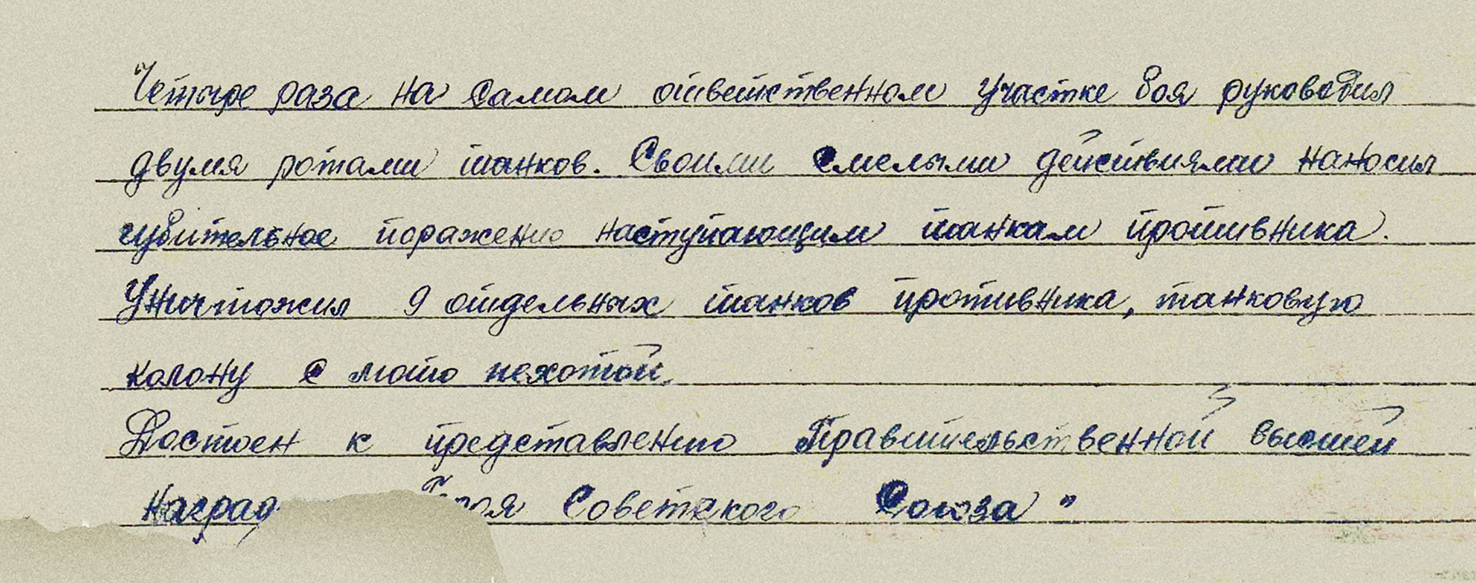 Четыре раза на самом ответственном участке боя руководил
двумя ротами танков. Своими смелыми действиями наносил
губительное поражение наступающим танкам противника.
Уничтожил 9 отдельных танков противника, танковую
колону с мото пехотой.
Достоен к представлению Правительственной высшей
Союза"
Советского